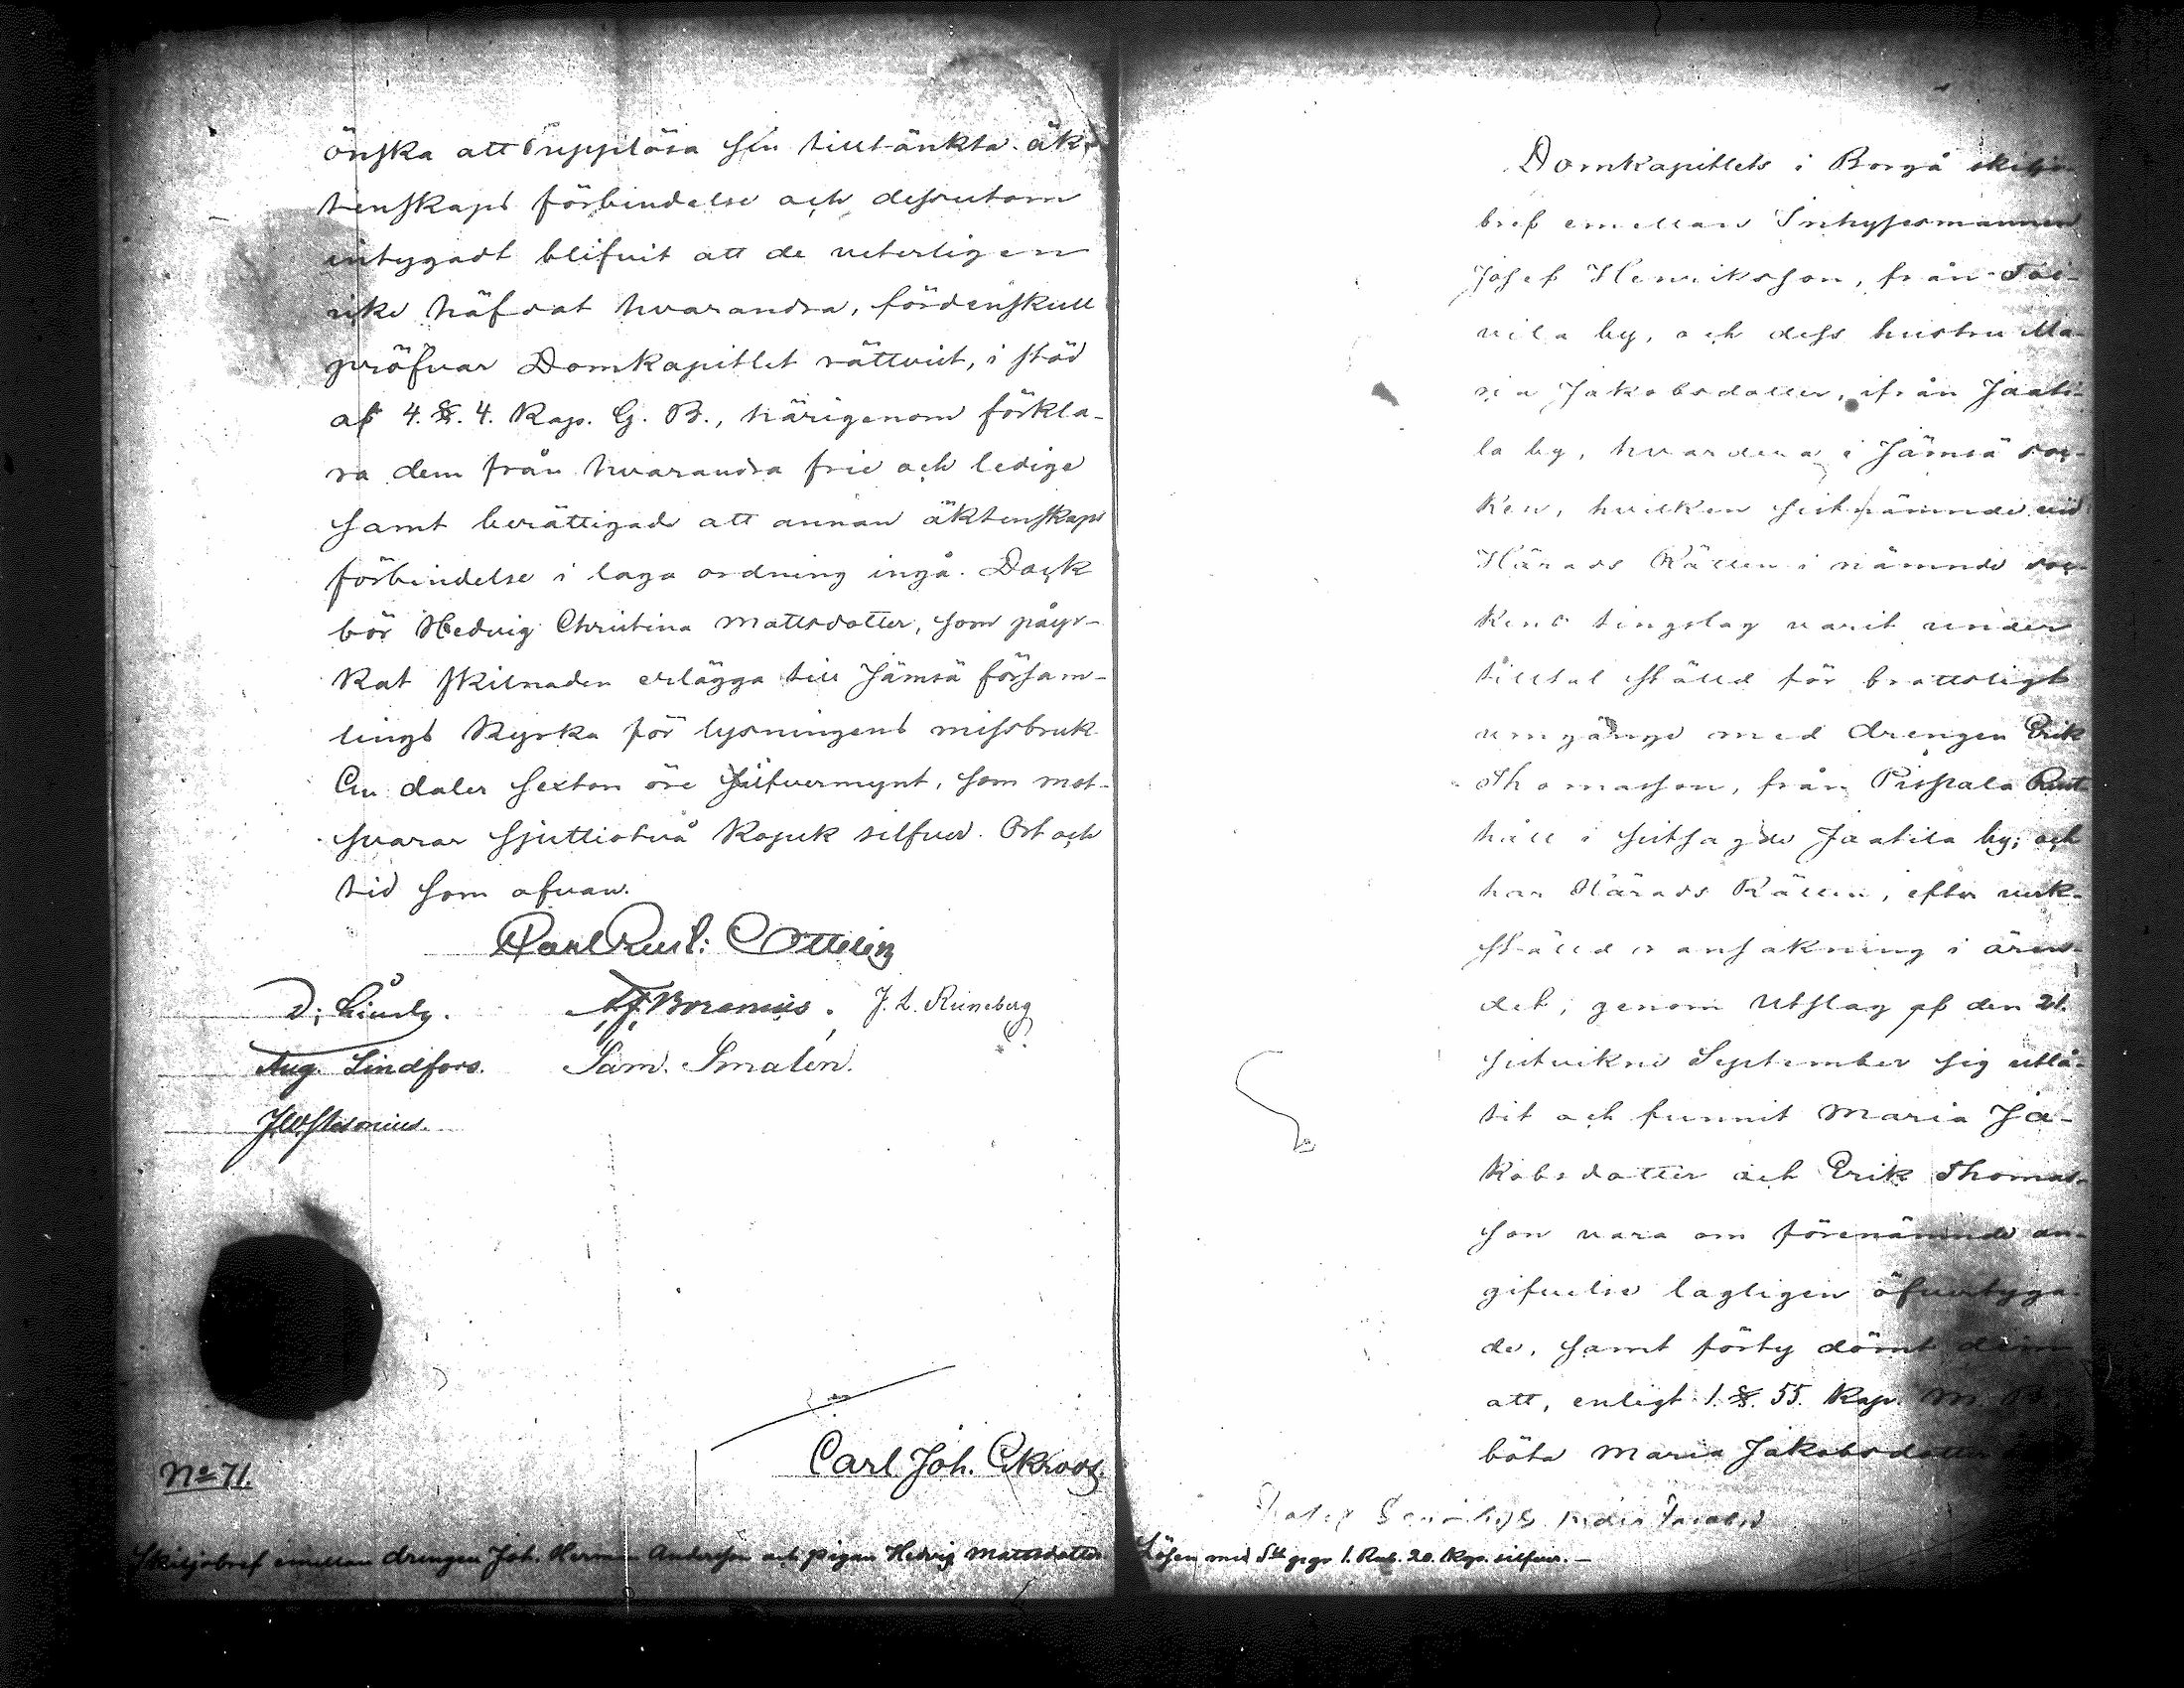 önska att upplösa sin tilltänkta äk-
tenskaps förbindelse och dessutom
intygadt blifvit att de veterligen
icke häfdat hvarandra, fördenskull
pröfvar Domkapitlet rättvist, i stöd
af 4. §. 4. Kap. G. B., härigenom förkla-
ra dem från hvarandra frie och ledige
samt berättigade att annan äktenskaps
förbindelse i laga ordning ingå. Dock
bör Hedvig Christina Mattsdotter, som påyr-
kat skilnaden erlägga till Jämsä försam-
lings Kyrka för lysningens missbruk
En daler sexton öre silfvermynt, som mot-
svarar sjuttiotvå Kopek silfver. Ort och
tid som ofvan.
Carl Gust: Ottelin
A. J. Borenius. J. L. Runeberg
Aug. Lindfors. Sam. Smalén.
Carl Joh. Ekroos
No 71.
Skiljobref emellan drengen Joh. Herman Andersson och pigan Hedvig Mattsdotter.
Domkapitlets i Borgå skiljo-
bref emellan Inhysesmannen
Josef Henriksson, från Toi-
vila by, och dess hustru Ma-
ria Jakobsdotter, ifrån Jaati-
la by, hvardera i Jämsä soc-
ken, hvilken sistnämnde vid
Härads Rätten i nämnde soc-
kens tingslag varit under
tilltal ställd för brottsligt
umgänge med drengen Erik
Thomasson, från Pispala Rust-
håll i sistsagde Jaatila by; och
har Härads Rätten, efter verk-
ställd ransakning i ären-
det, genom Utslag af den 21.
sistvikne September sig utlå-
tit och funnit Maria Ja-
kobsdotter och Erik Thomas-
son vara om förenämnde an-
gifvelse lagligen öfvertyga-
de, samt förty dömt dem
att, enligt 1. §. 55. Kap. M. B.
böta Maria Jakobsdotter
Lösen med Stt ppr 1. Rub. 20. Kop. silfver.—